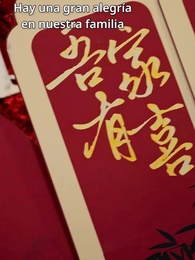 Hay una gran alegría
en nuestra familia
吾家
有喜